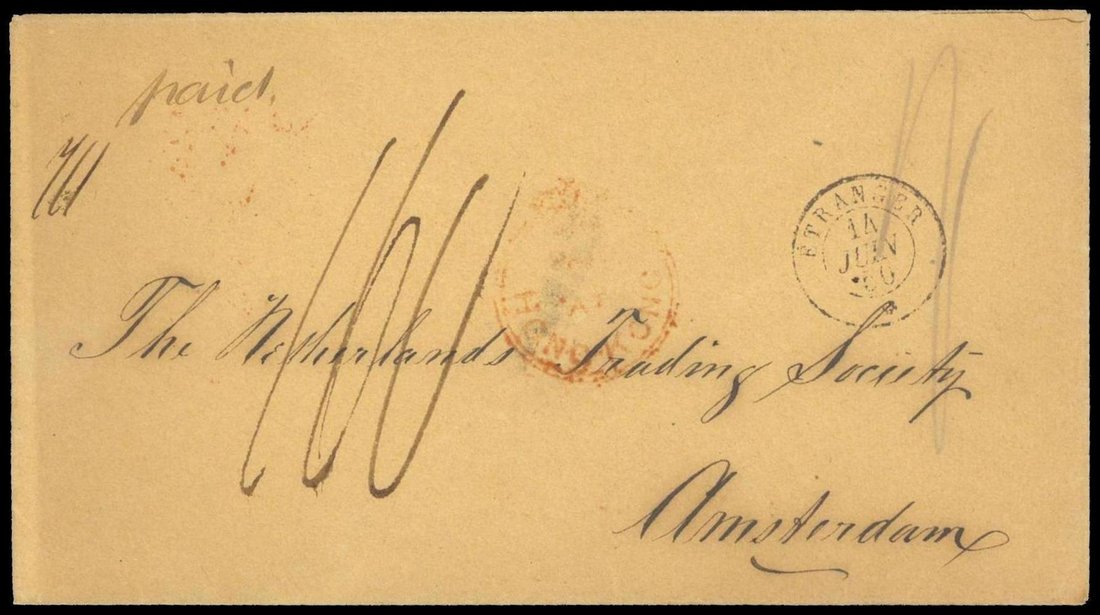 paid.
ÉTRANGER
14
JUIN
HONG KONG
The Netherlands Trading Society
Amsterdam